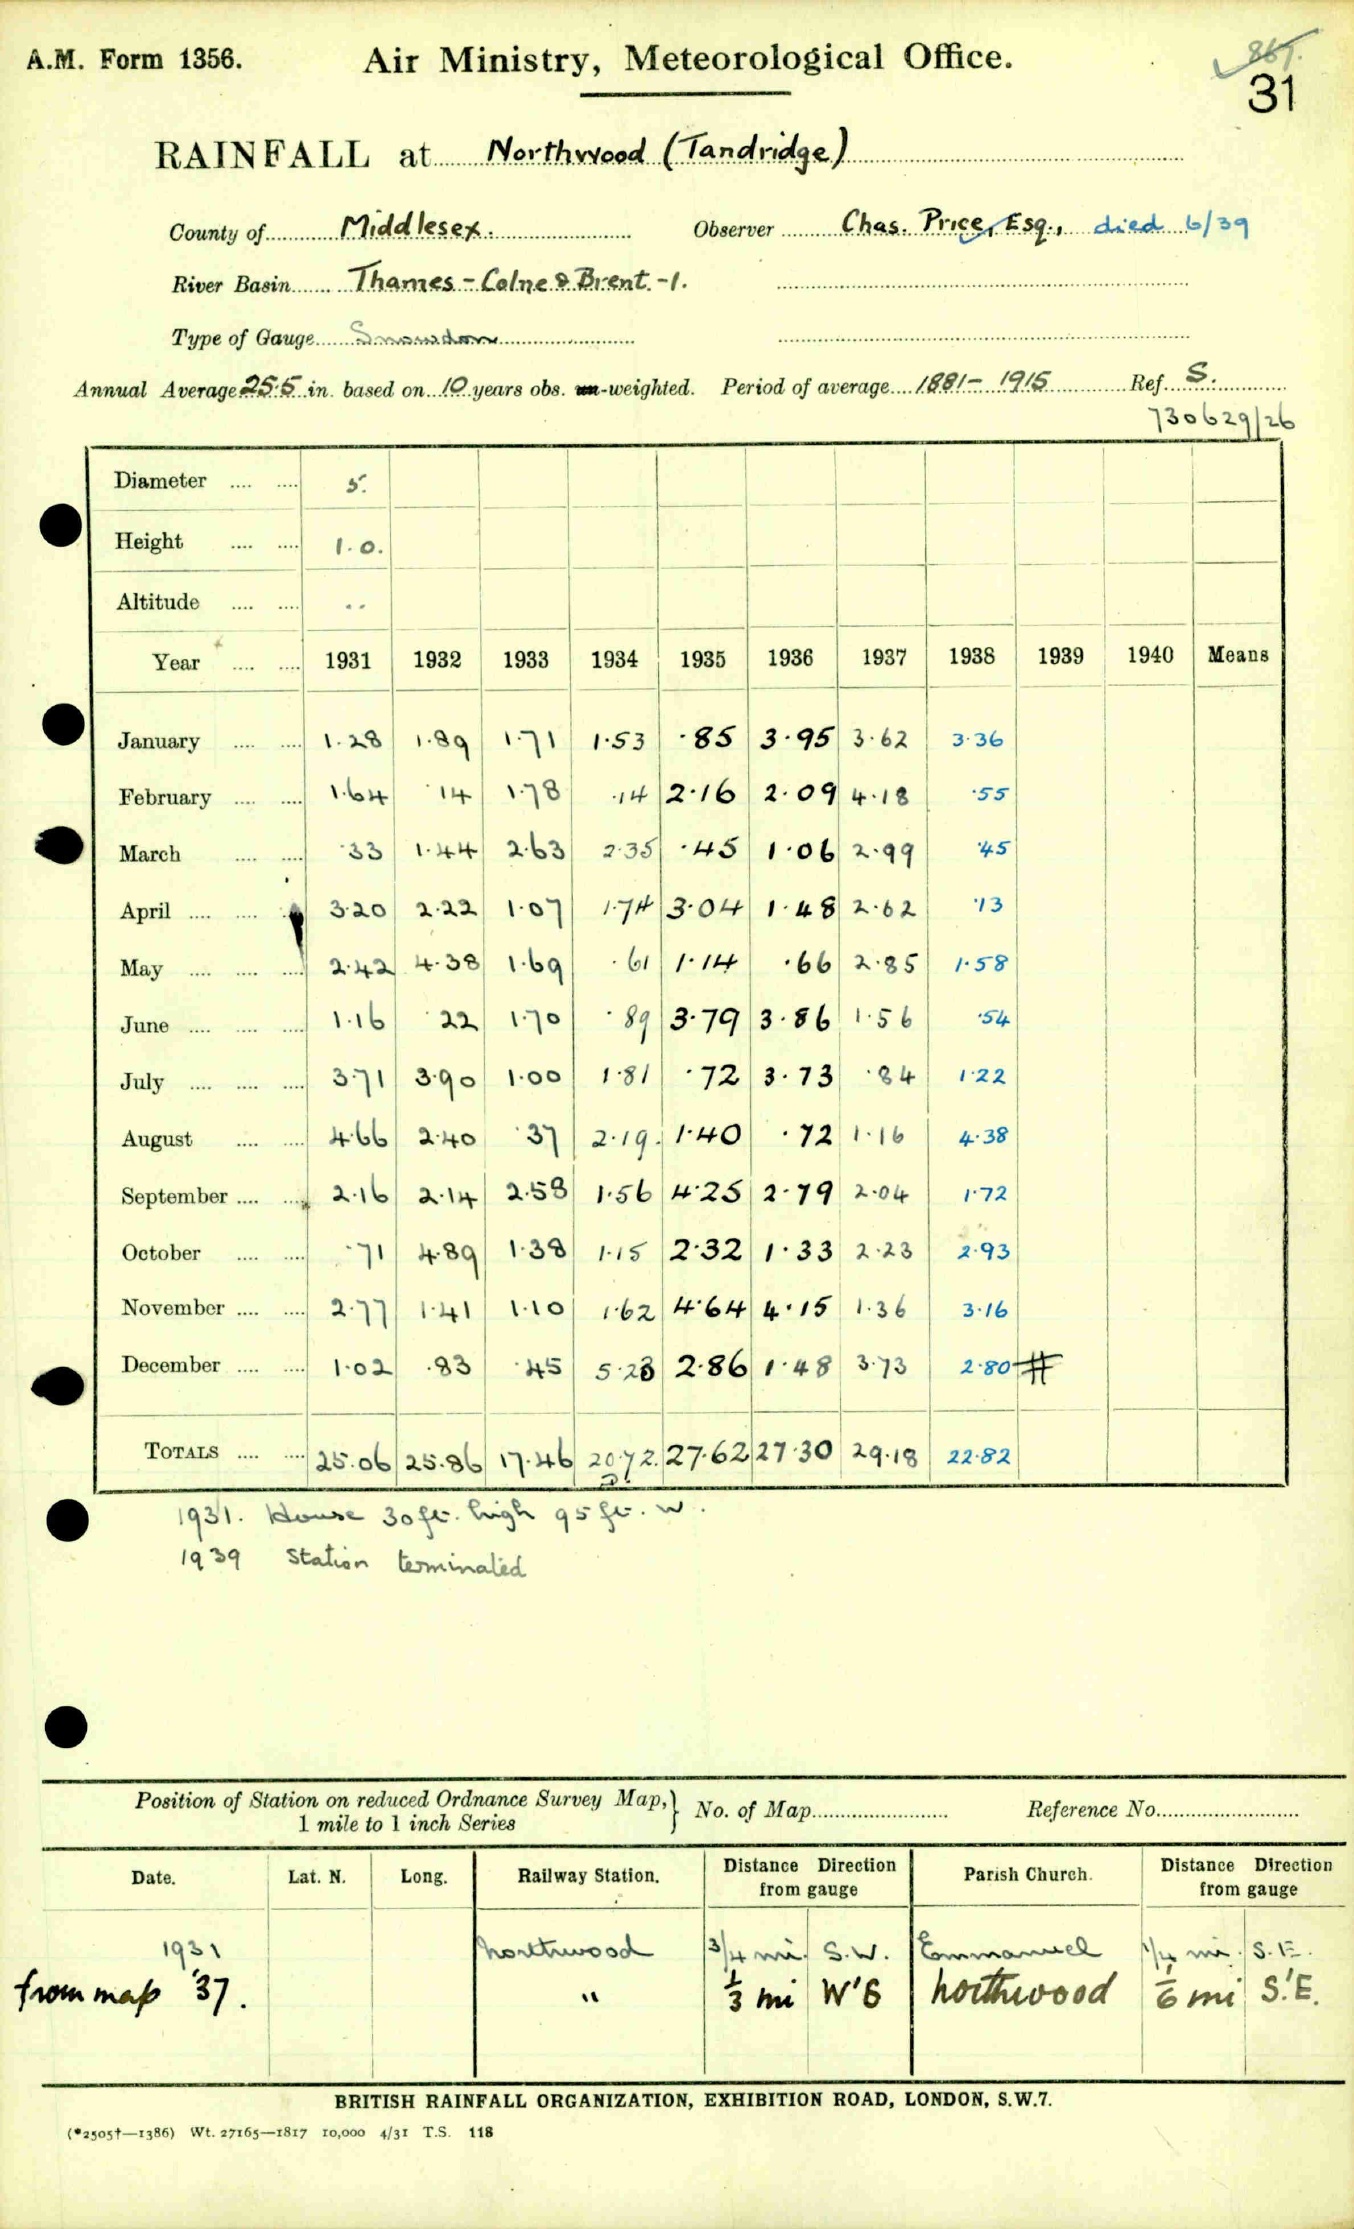 A.M. Form 1356. Air Ministry, Meteorological Office. 867.
31
RAINFALL at Northwood (Tandridge)
County of Middlesex. Observer Chas. Price, Esq., died 6/39
River Basin Thames - Colne & Brent. -1.
Type of Gauge Snowdon
Annual Average 25.5 in. based on 10 years obs. un-weighted. Period of average 1881 - 1915 Ref. S.
730629/26
Diameter .... .... 5.
Height .... .... 1.0.
Altitude .... .... ..
Year .... .... 1931 1932 1933 1934 1935 1936 1937 1938 1939 1940 Means
January .... .... 1.28 1.89 1.71 1.53 .85 3.95 3.62 3.36
February .... .... 1.64 .14 1.78 .14 2.16 2.09 4.18 .55
March .... .... .33 1.44 2.63 2.35 .45 1.06 2.99 .45
April .... .... .... 3.20 2.22 1.07 1.74 3.04 1.48 2.62 .13
May .... .... .... 2.42 4.38 1.69 .61 1.14 .66 2.85 1.58
June .... .... .... 1.16 .22 1.70 .89 3.79 3.86 1.56 .54
July .... .... .... 3.71 3.90 1.00 1.81 .72 3.73 .84 1.22
August .... .... 4.66 2.40 .37 2.19. 1.40 .72 1.16 4.38
September .... .... 2.16 2.14 2.58 1.56 4.25 2.79 2.04 1.72
October .... .... .71 4.89 1.38 1.15 2.32 1.33 2.23 2.93
November .... .... 2.77 1.41 1.10 1.62 4.64 4.15 1.36 3.16
December .... .... 1.02 .83 .45 5.23 2.86 1.48 3.73 2.80 #
TOTALS .... .... 25.06 25.86 17.46 20.72. 27.62 27.30 29.18 22.82
1931. House 30 ft. high 95 ft. W.
1939 Station terminated
Position of Station on reduced Ordnance Survey Map, } No. of Map Reference No.
1 mile to 1 inch Series
Date. Lat. N. Long. Railway Station. Distance Direction from gauge Parish Church. Distance Direction from gauge
1931 Northwood 3/4 mi. S.W. Emmanuel 1/4 mi. S.E.
from map '37. " 1/3 mi W'S Northwood 1/6 mi S'E.
BRITISH RAINFALL ORGANIZATION, EXHIBITION ROAD, LONDON, S.W.7.
(*2505†—1386) Wt. 27165—1817 10,000 4/31 T.S. 118